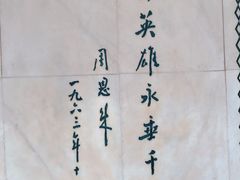 英雄永垂千
周恩来
一九六三年十